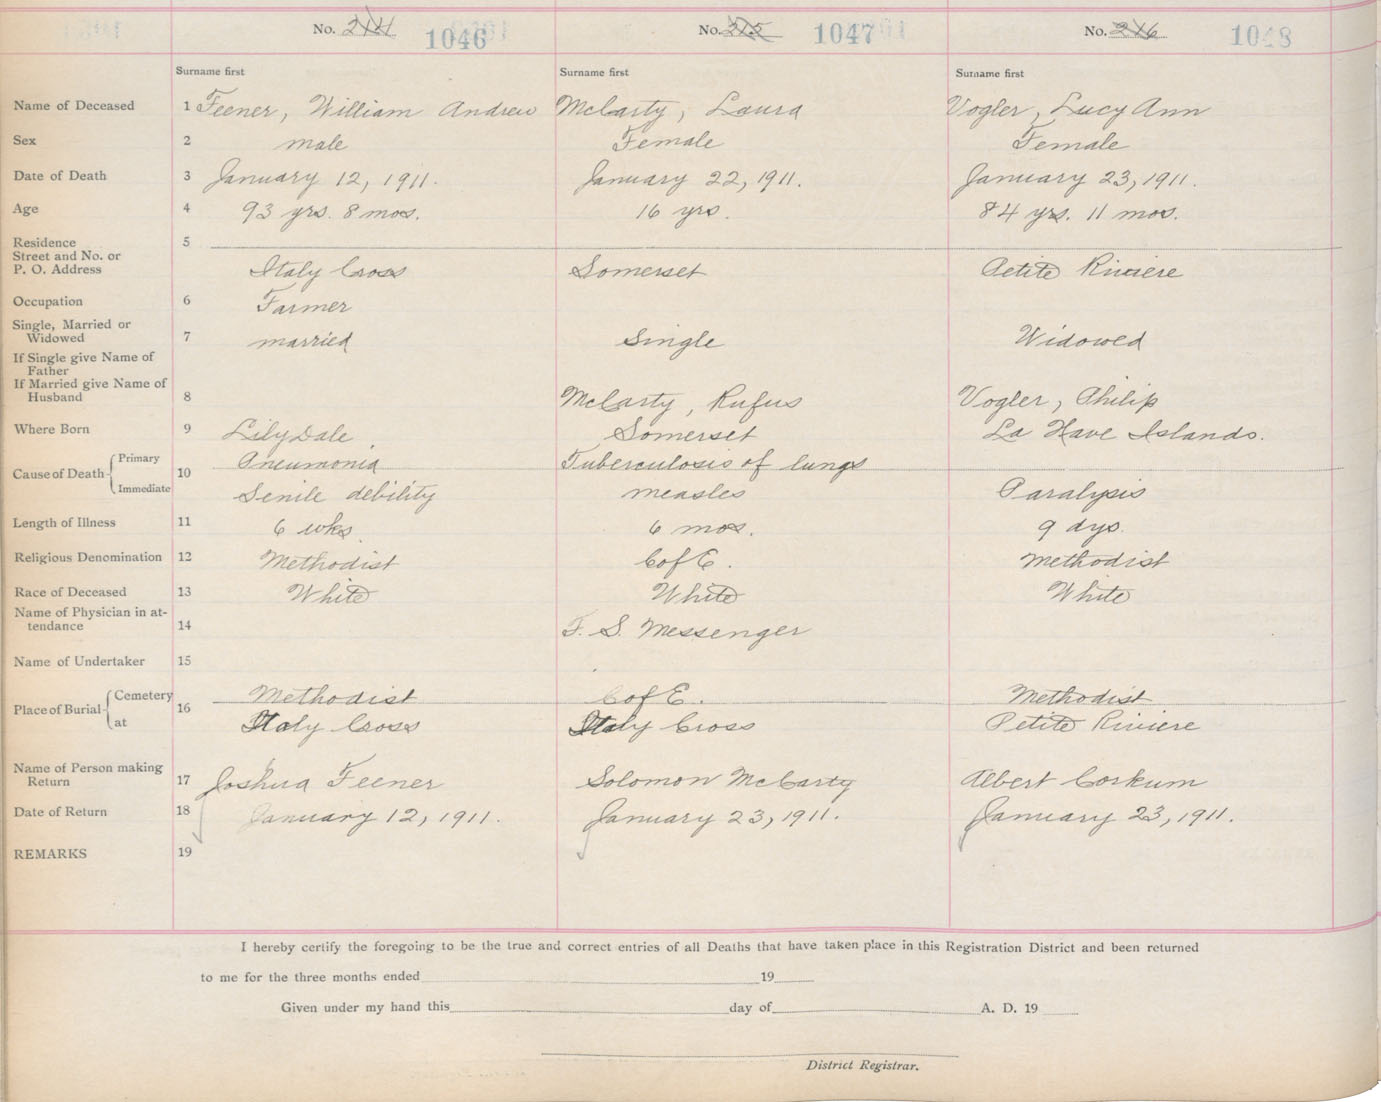 No. 214 1046 No. 215 1047 No. 216 1048
Surname first Surname first Surname first
Name of Deceased 1 Feener, William Andrew McCarty, Laura Vogler, Lucy Ann
Sex 2 male Female Female
Date of Death 3 January 12, 1911. January 22, 1911. January 23, 1911.
Age 4 93 yrs. 8 mos. 16 yrs. 84 yrs. 11 mos.
Residence 5
Street and No. or
P. O. Address Italy Cross Somerset Petite Riviere
Occupation 6 Farmer
Single, Married or
Widowed 7 married Single Widowed
If Single give Name of
Father
If Married give Name of
Husband 8 McCarty, Rufus Vogler, Philip
Where Born 9 LilyDale Somerset La Have Islands.
Cause of Death Primary 10 Pneumonia Tuberculosis of lungs
Immediate Senile debility measles Paralysis
Length of Illness 11 6 wks. 6 mos. 9 dys.
Religious Denomination 12 Methodist C of E. Methodist
Race of Deceased 13 White White White
Name of Physician in at-
tendance 14 F. S. Messenger
Name of Undertaker 15
Place of Burial Cemetery 16 Methodist C of E. Methodist
at Italy Cross Italy Cross Petite Riviere
Name of Person making
Return 17 Joshua Feener Solomon McCarty Albert Corkum
Date of Return 18 January 12, 1911. January 23, 1911. January 23, 1911.
REMARKS 19
I hereby certify the foregoing to be the true and correct entries of all Deaths that have taken place in this Registration District and been returned
to me for the three months ended 19
Given under my hand this day of A. D. 19
District Registrar.